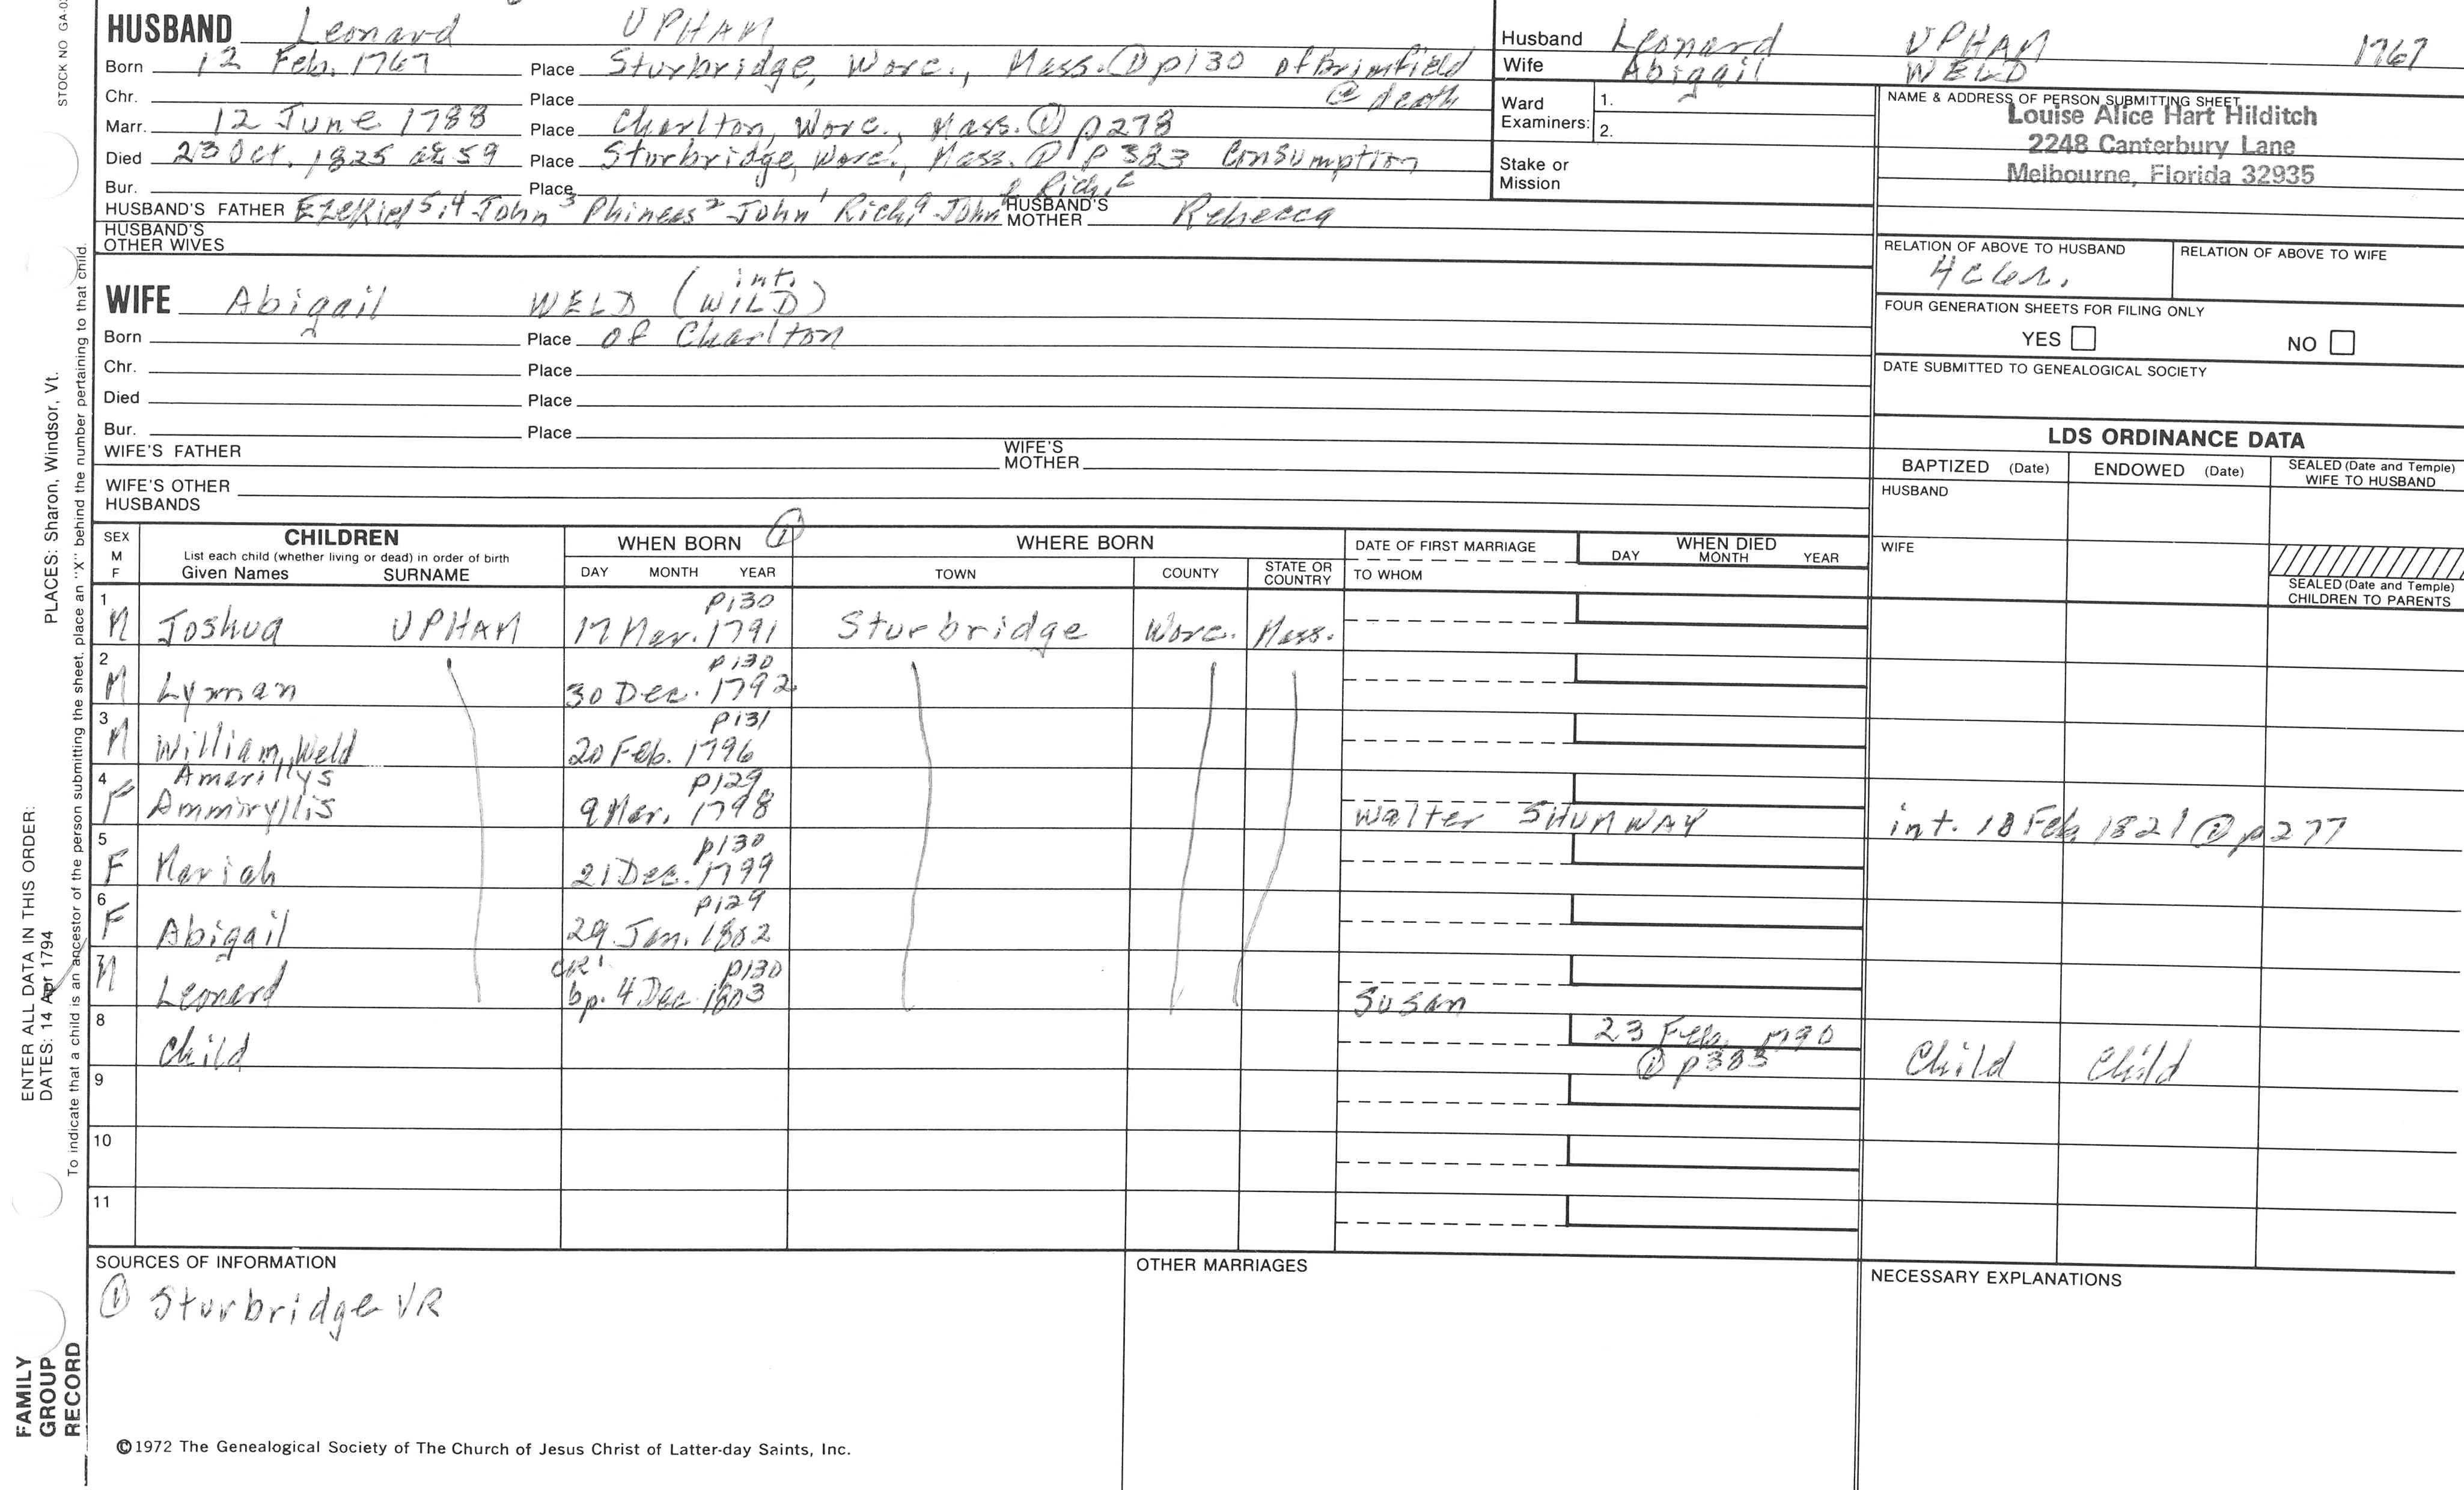 STOCK NO GA-0
HUSBAND Leonard UPHAM
Born 12 Feb. 1767 Place Sturbridge, Worc., Mass. ① p130 of Brimfield
@ death
Chr. Place
Marr. 12 June 1788 Place Charlton, Worc., Mass. ① p278
Died 23 Oct. 1825 ae 59 Place Sturbridge, Worc., Mass. ① p383 Consumption
Bur. Place
HUSBAND'S FATHER Ezekiel 5,4 John 3 Phinees 2 John 1 Rich. a John b Rich. c HUSBAND'S MOTHER Rebecca
HUSBAND'S OTHER WIVES
Husband Leonard UPHAM 1767
Wife Abigail WELD
Ward Examiners: 1.
2.
Stake or Mission
NAME & ADDRESS OF PERSON SUBMITTING SHEET
Louise Alice Hart Hilditch
2248 Canterbury Lane
Melbourne, Florida 32935
RELATION OF ABOVE TO HUSBAND RELATION OF ABOVE TO WIFE
FOUR GENERATION SHEETS FOR FILING ONLY
YES NO
DATE SUBMITTED TO GENEALOGICAL SOCIETY
int.
WIFE Abigail WELD (WILD)
Born Place of Charlton
Chr. Place
Died Place
Bur. Place
WIFE'S FATHER WIFE'S MOTHER
WIFE'S OTHER HUSBANDS
LDS ORDINANCE DATA
BAPTIZED (Date) ENDOWED (Date) SEALED (Date and Temple) WIFE TO HUSBAND
HUSBAND
WIFE
SEALED (Date and Temple) CHILDREN TO PARENTS
SEX M F
CHILDREN
List each child (whether living or dead) in order of birth
Given Names SURNAME
WHEN BORN ①
DAY MONTH YEAR
WHERE BORN
TOWN COUNTY STATE OR COUNTRY
DATE OF FIRST MARRIAGE
TO WHOM
WHEN DIED
DAY MONTH YEAR
p130
1 M Joshua UPHAM 17 Mar. 1791 Sturbridge Worc. Mass.
p130
2 M Lyman 30 Dec. 1792
p131
3 M William Weld 20 Feb. 1796
Amarillys p129
4 F Ammiryllis 9 Mar. 1798 Walter SHUMWAY int. 18 Feb. 1821 ① p277
p130
5 F Mariah 21 Dec. 1799
p129
6 F Abigail 29 Jan. 1802
CR1 p130
7 M Leonard bp. 4 Dec. 1803 Susan
8 Child 23 Feb. 1790 Child Child
① p383
9
10
11
SOURCES OF INFORMATION
① Sturbridge VR
OTHER MARRIAGES
NECESSARY EXPLANATIONS
©1972 The Genealogical Society of The Church of Jesus Christ of Latter-day Saints, Inc.
ENTER ALL DATA IN THIS ORDER:
DATES: 14 Apr 1794 PLACES: Sharon, Windsor, Vt.
To indicate that a child is an ancestor of the person submitting the sheet, place an "X" behind the number pertaining to that child.
FAMILY
GROUP
RECORD